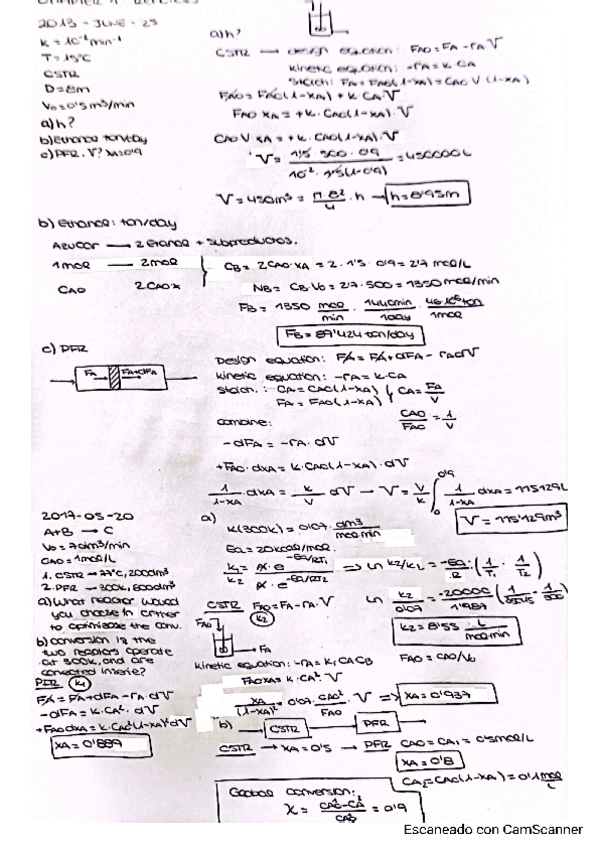 2013 - JUNE - 25
K = 10⁻² min⁻¹
T = 15ºC
CSTR
D = 8m
V₀ = 0'5 m³/min
a) h?
b) Ethanol ton/day
c) PFR, V? XA = 0'9
a) h?
CSTR → design equation: FAO = FA - rA V
Kinetic equation: -rA = K CA
Stoich: FA = FAO(1-XA) = CAO V (1-XA)
FAO = FAO(1-XA) + K CA V
FAO XA = + K · CAO(1-XA) · V
CAO V XA = + K · CAO(1-XA) · V
V = 1'5 · 500 · 0'9 / 10⁻² · 1'5(1-0'9) = 450000L
V = 450m³ = π · 8² / 4 · h → h = 8'95m
b) Ethanol: ton/day
Azucar → 2 Etanol + subproductos.
1mol → 2mol
CAO 2CAOX
CB = 2CAO·XA = 2 · 1'5 · 0'9 = 2'7 mol/L
NB = CB·V₀ = 2'7 · 500 = 1350 mol/min
FB = 1350 mol/min · 1440min/1day · 46·10⁻⁶ton/1mol
FB = 89'424 ton/day
c) PFR
FA FA+dFA
Design equation: FA = FA + dFA - rA dV
Kinetic equation: -rA = K · CA
Stoich.: CA = CAO(1-XA)
FA = FAO(1-XA)
CA = FA/V
CAO/FAO = 1/V
combine:
-dFA = -rA · dV
+FAO · dXA = K · CAO(1-XA) · dV
1/1-XA · dXA = K/V dV → V = V/K ∫ 0'9 0 1/1-XA dXA = 115129L
V = 115'129m³
2017-05-20
A+B → C
V₀ = 7dm³/min
CAO = 1mol/L
1. CSTR → 77ºC, 200dm³
2. PFR → 300K, 800dm³
a) What reactor would
you choose in order
to optimisase the conv.
b) conversion if the
two reactors operate
at 300K, and are
conected in serie?
PFR K₁
FA = FA + dFA - rA dV
-dFA = K · CA² · dV
+FAO dXA = K · CAO²(1-XA)² dV
XA = 0'889
a)
K(300K) = 0'07 · dm³/mol·min
Ea = 20kcal/mol.
K₁/K₂ = A · e^-Ea/RT₁ / A · e^-Ea/RT₂ ⇒ Ln K₂/K₁ = -Ea/R · (1/T₁ - 1/T₂)
Ln K₂/0'07 = -20000/1'987
K₂ = 8'55 L/mol·min
CSTR FAO = FA - rA · V
K₂
FAO
FA
FAO = CAO/V₀
Kinetic equation: -rA = K₁ CA CB
FAO XA = K · CA² · V
XA/(1-XA)² = 0'07 · CAO²/FAO · V ⇒ XA = 0'937
b) CSTR → PFR
CSTR → XA = 0'5 → PFR CAO = CA₁ = 0'5mol/L
XA = 0'8
CA₂ = CAO(1-XA) = 0'1 mol/L
Global conversion:
= 0'9
Escaneado con CamScanner